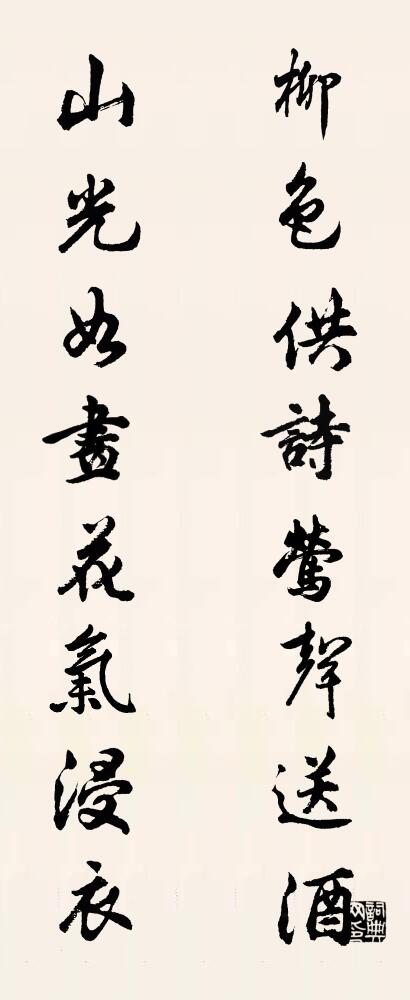 柳色供詩鶯聲送酒
山光如畫花氣浸衣